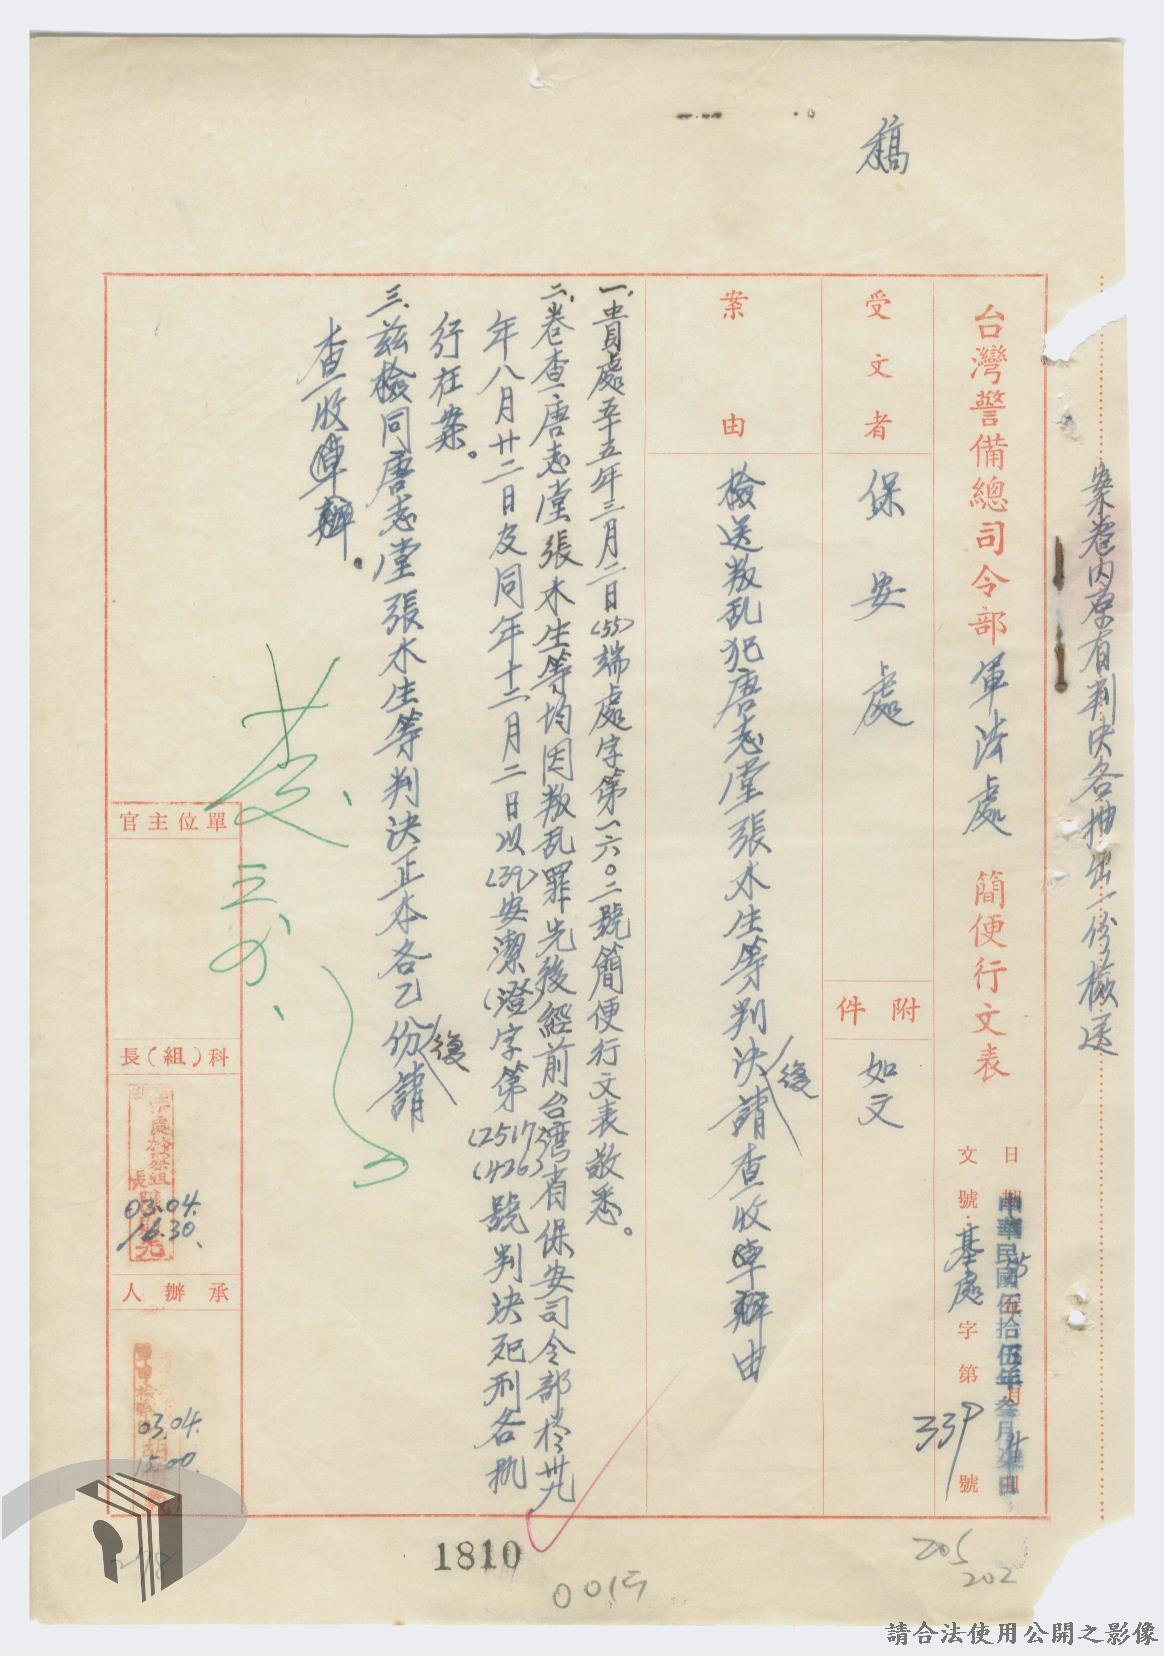 稿
案卷內原有判決各抽出一份檢送
台灣警備總司令部軍法處 簡便行文表
日期
中華民國伍拾伍年叁月
文號：基處字第339號
受文者 保安處
附件 如文
案由 檢送叛乱犯唐志堂張水生等判決請查收後卓辦由
一、貴處五十五年三月二日(55)端處字第一六〇二號簡便行文表敬悉。
二、卷查唐志堂張水生等均因叛乱罪先後經前台灣省保安司令部於卅九
年八月廿二日及同年十二月二日以(39)安潔(澄)字第(2517)(426)號判決死刑各執
行在案。
三、茲檢同唐志堂張水生等判決正本各乙份請
復
查收卓辦。
單位主官
科(組)長
03.04.
16.30.
承辦人
03.04.
15.00.
1810
0015
205
202
278
請合法使用公開之影像